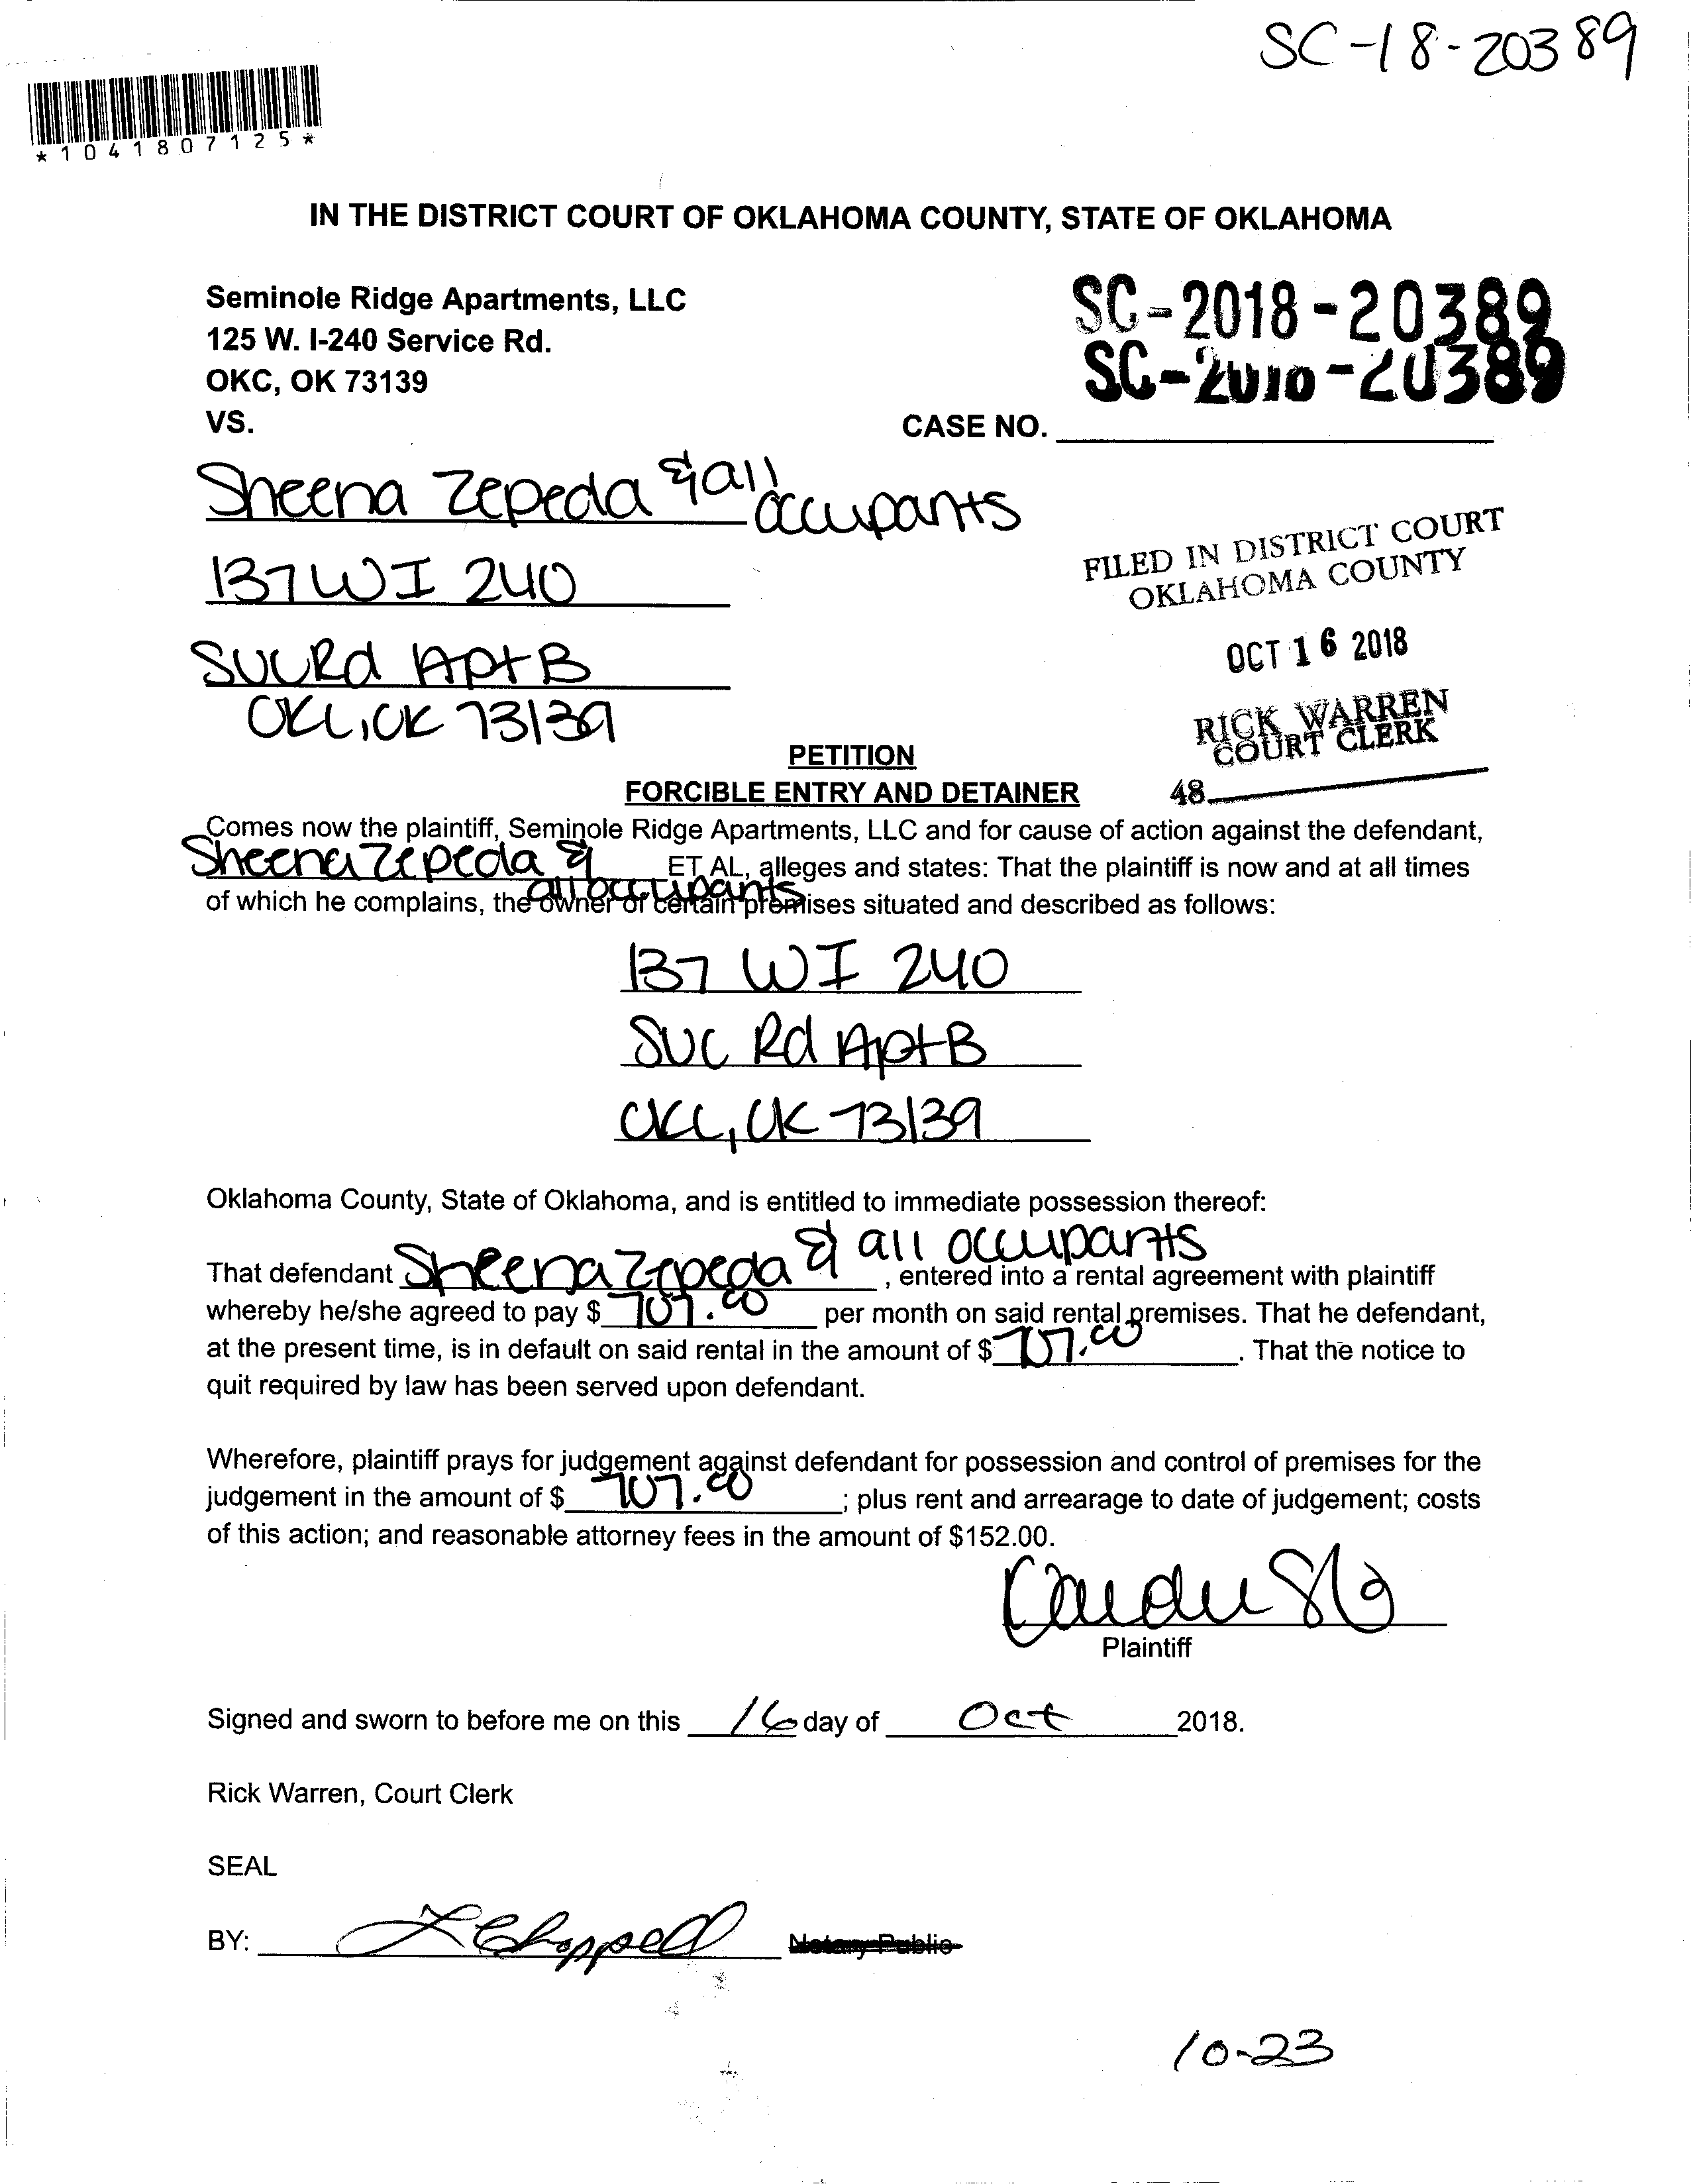 SC-18-20389
*1041807125*
IN THE DISTRICT COURT OF OKLAHOMA COUNTY, STATE OF OKLAHOMA
Seminole Ridge Apartments, LLC
125 W. I-240 Service Rd.
OKC, OK 73139
VS.
SC-2018-20389
SC-2018-20389
CASE NO.
Sheena Zepeda & all occupants
137 W I 240
SVC Rd Apt B
OKC, OK 73139
FILED IN DISTRICT COURT
OKLAHOMA COUNTY
OCT 16 2018
RICK WARREN
COURT CLERK
48
PETITION
FORCIBLE ENTRY AND DETAINER
Comes now the plaintiff, Seminole Ridge Apartments, LLC and for cause of action against the defendant,
Sheena Zepeda & all occupants ET AL, alleges and states: That the plaintiff is now and at all times
of which he complains, the owner of certain premises situated and described as follows:
137 W I 240
SVC Rd Apt B
OKC, OK 73139
Oklahoma County, State of Oklahoma, and is entitled to immediate possession thereof:
That defendant Sheena Zepeda & all occupants, entered into a rental agreement with plaintiff
whereby he/she agreed to pay $ 707.00 per month on said rental premises. That he defendant,
at the present time, is in default on said rental in the amount of $ 707.00. That the notice to
quit required by law has been served upon defendant.
Wherefore, plaintiff prays for judgement against defendant for possession and control of premises for the
judgement in the amount of $ 707.00; plus rent and arrearage to date of judgement; costs
of this action; and reasonable attorney fees in the amount of $152.00.
Plaintiff
Signed and sworn to before me on this 16 day of Oct 2018.
Rick Warren, Court Clerk
SEAL
BY: L Chappell Notary Public
10-23